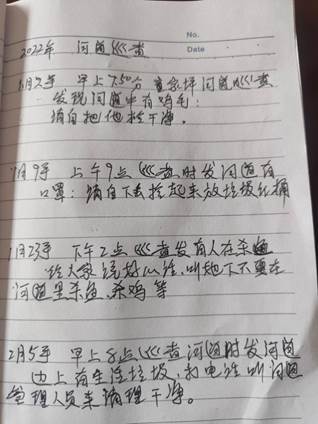 No.
Date
2022年 河道巡查
1月2号 早上7.50分 查家坪河道巡查
发现河道中有鸡毛:
请自把他捡干净。
1月9号 上午9点巡查时发河道有
口罩: 请自下去捡起来放垃圾桶
1月23号 下午2点巡查发有人在杀鱼
给大家说好心话,叫她下不要在
河道里杀鱼、杀鸡等
2月5号 早上8点巡查河道时发河道
边上有生活垃圾,打电话叫河道
管理人员来清理干净。